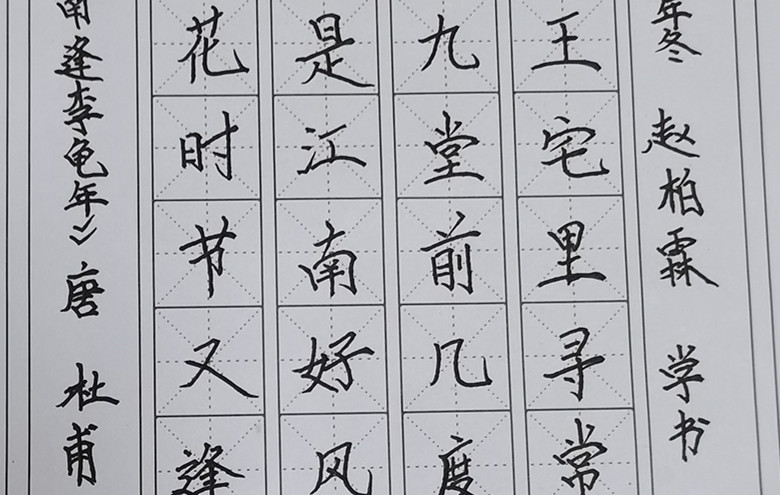 年冬 赵柏霖 学书
王宅里寻常
九堂前几度
是江南好风
花时节又逢
南逢李龟年》唐 杜甫